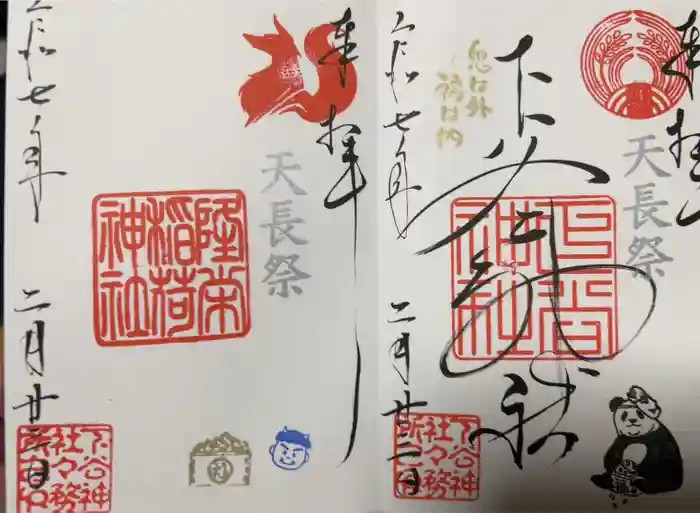 奉拝
下谷神社
天長祭
下谷神社
鬼は外
福は内
令和七年 二月廿三日
下谷神
社々務
所之印
奉拝
天長祭
隆栄
稲荷
神社
令和七年 二月廿三日
下谷神
社々務
所之印